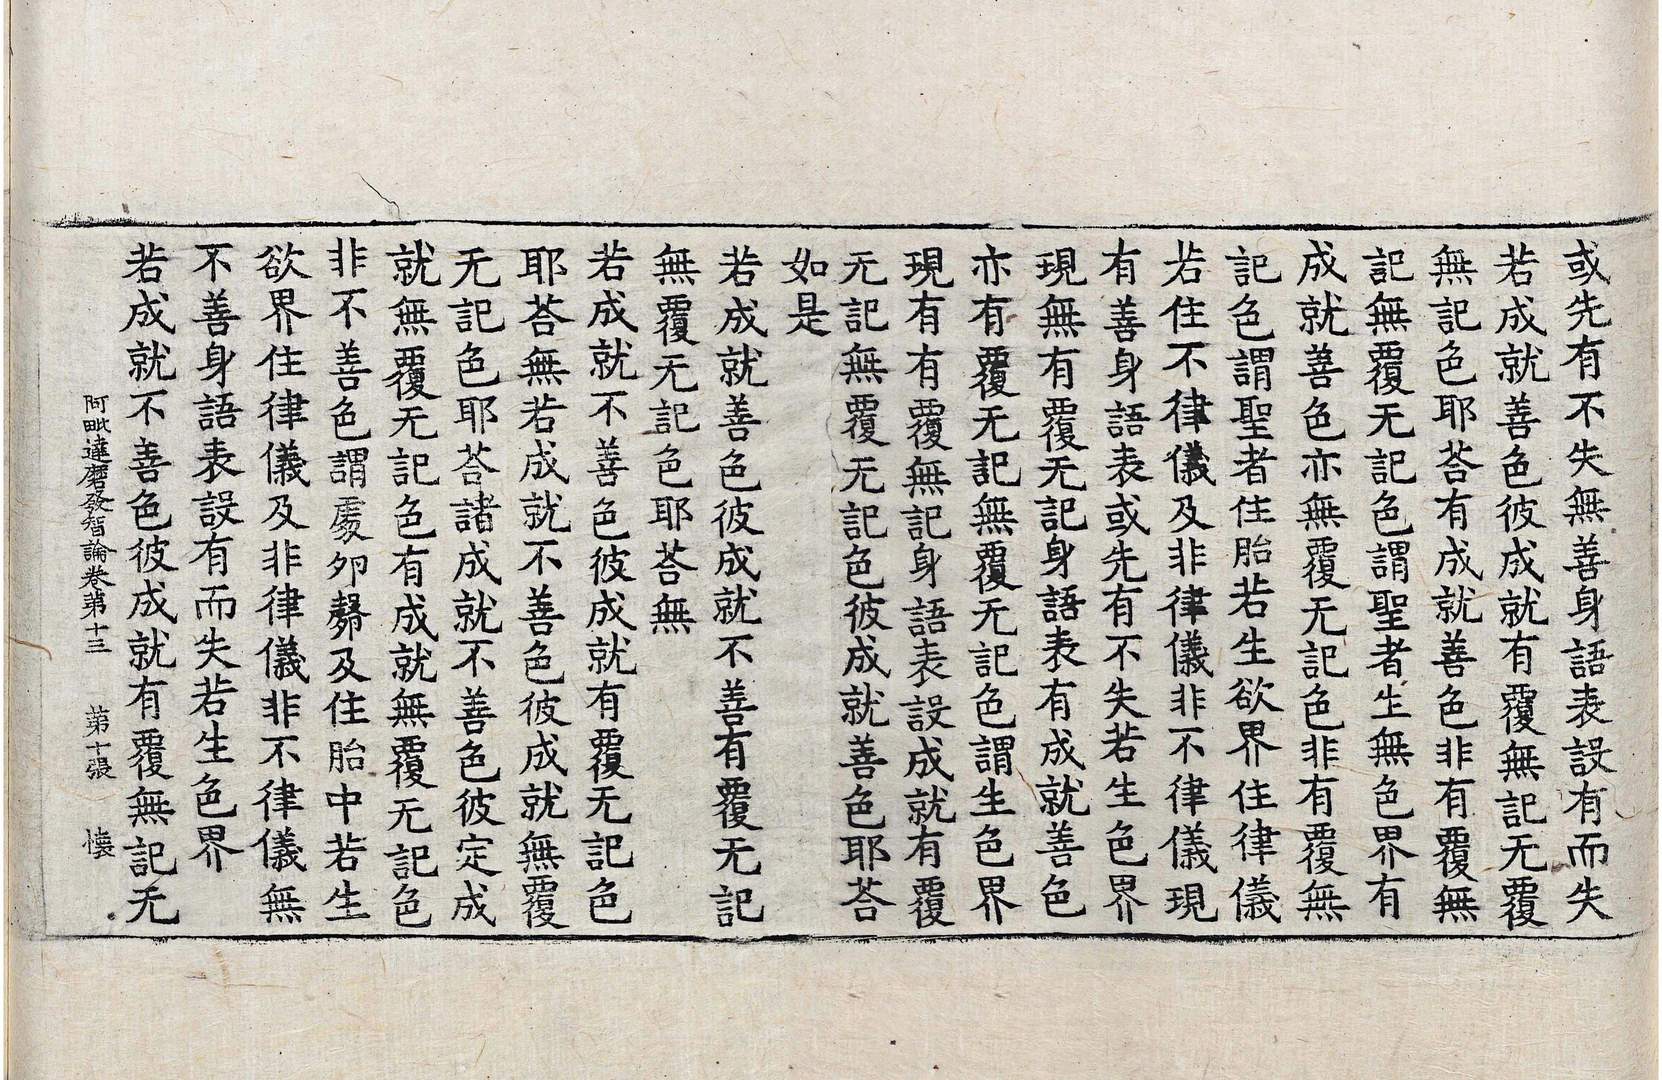 或先有不失無善身語表設有而失
若成就善色彼成就有覆無記无覆
無記色耶荅有成就善色非有覆無
記無覆无記色謂聖者生無色界有
成就善色亦無覆无記色非有覆無
記色謂聖者住胎若生欲界住律儀
若住不律儀及非律儀非不律儀現
有善身語表或先有不失若生色界
現無有覆无記身語表有成就善色
亦有覆无記無覆无記色謂生色界
現有有覆無記身語表設成就有覆
无記無覆无記色彼成就善色耶荅
如是
若成就善色彼成就不善有覆无記
無覆无記色耶荅無
若成就不善色彼成就有覆无記色
耶荅無若成就不善色彼成就無覆
无記色耶荅諸成就不善色彼定成
就無覆无記色有成就無覆无記色
非不善色謂處夘㲉及住胎中若生
欲界住律儀及非律儀非不律儀無
不善身語表設有而失若生色界
若成就不善色彼成就有覆無記无
阿毗達磨發智論卷第十三 第十張 懐